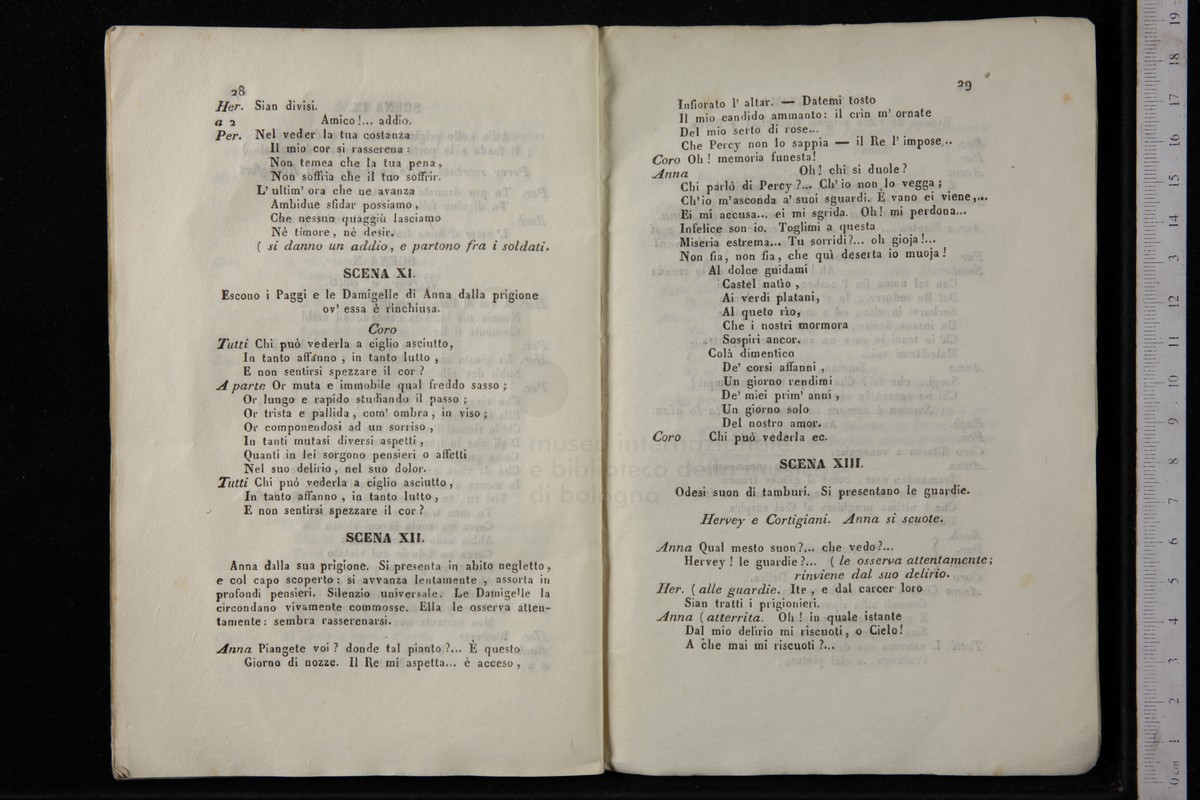 28
Her. Sian divisi.
a 2 Amico!... addio.
Per. Nel veder la tua costanza
Il mio cor si rasserena:
Non temea che la tua pena,
Non soffria che il tuo soffrir.
L' ultim' ora che ne avanza
Ambidue sfidar possiamo,
Che nessun quaggiù lasciamo
Nè timore, nè desir.
( si danno un addio, e partono fra i soldati.
SCENA XI.
Escono i Paggi e le Damigelle di Anna dalla prigione
ov' essa è rinchiusa.
Coro
Tutti Chi può vederla a ciglio asciutto,
In tanto affanno , in tanto lutto ,
E non sentirsi spezzare il cor ?
A parte Or muta e immobile qual freddo sasso ;
Or lungo e rapido studiando il passo ;
Or trista e pallida , com' ombra , in viso ;
Or componendosi ad un sorriso ,
In tanti mutasi diversi aspetti ,
Quanti in lei sorgono pensieri o affetti
Nel suo delirio, nel suo dolor.
Tutti Chi può vederla a ciglio asciutto ,
In tanto affanno , in tanto lutto ,
E non sentirsi spezzare il cor ?
SCENA XII.
Anna dalla sua prigione. Si presenta in abito negletto,
e col capo scoperto : si avvanza lentamente , assorta in
profondi pensieri. Silenzio universale. Le Damigelle la
circondano vivamente commosse. Ella le osserva atten-
tamente : sembra rasserenarsi.
Anna Piangete voi ? donde tal pianto ?... È questo
Giorno di nozze. Il Re mi aspetta... è acceso ,
29
Infiorato l' altar. — Datemi tosto
Il mio candido ammanto: il crin m' ornate
Del mio serto di rose...
Che Percy non lo sappia — il Re l' impose...
Coro Oh ! memoria funesta!
Anna Oh! chi si duole ?
Chi parlò di Percy ?... Ch' io non lo vegga ;
Ch' io m'asconda a' suoi sguardi. È vano ei viene,...
Ei mi accusa... ei mi sgrida. Oh! mi perdona...
Infelice son io. Toglimi a questa
Miseria estrema... Tu sorridi?... oh gioja!...
Non fia, non fia, che quì deserta io muoja!
Al dolce guidami
Castel natìo ,
Ai verdi platani,
Al queto rìo,
Che i nostri mormora
Sospiri ancor.
Colà dimentico
De' corsi affanni ,
Un giorno rendimi
De' miei prim' anni ,
Un giorno solo
Del nostro amor.
Coro Chi può vederla ec.
SCENA XIII.
Odesi suon di tamburi. Si presentano le guardie.
Hervey e Cortigiani. Anna si scuote.
Anna Qual mesto suon?... che vedo?...
Hervey ! le guardie ?... ( le osserva attentamente;
rinviene dal suo delirio.
Her. ( alle guardie. Ite , e dal carcer loro
Sian tratti i prigionieri.
Anna ( atterrita. Oh ! in quale istante
Dal mio delirio mi riscuoti, o Cielo!
A che mai mi riscuoti ?...